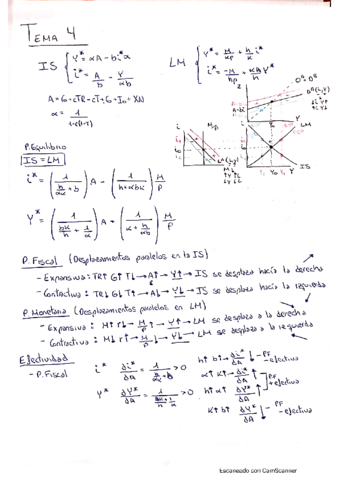 TEMA 4
IS { Y* = αA - bi*α
i* = A/b - Y/αb
LM { Y* = M/kp + h/k i*
i* = -M/hp + k/h Y*
A = G + cTR - cT + G + I₀ + XN
α = 1/1-c(1-t)
P. Equilibrio
IS = LM
i* = (1/(h/kα + b)) A - (1/(h + αbk)) M/P
Y* = (1/(bk/h + 1/α)) A + (1/(k + h/αb)) M/P
P. Fiscal (Desplazamientos paralelos en la IS)
- Expansiva: TR↑ G↑ T↓ → A↑ → Y↑ → IS se desplaza hacia la derecha
- Contractiva: TR↓ G↓ T↑ → A↓ → Y↓ → IS se desplaza hacia la izquierda
P. Monetaria (Desplazamientos paralelos en LM)
- Expansiva: M↑ r↓ → M/P ↑ → Y↑ → LM se desplaza a la derecha
- Contractiva: M↓ r↑ → M/P ↓ → Y↓ → LM se desplaza a la izquierda
Efectividad
- P. Fiscal
i* ∂i*/∂A = 1/(h/kα + b) > 0
h↑ b↑ ∂i*/∂A ↓ - PF -efectiva
α↑ k↑ → ∂i*/∂A ↑
Y* ∂Y*/∂A = 1/(bk/h + 1/α) > 0
h↑ α↑ ∂Y*/∂A ↑ PF +efectiva
K↑ b↑ ∂Y*/∂A ↓ - PF -efectiva
Escaneado con CamScanner